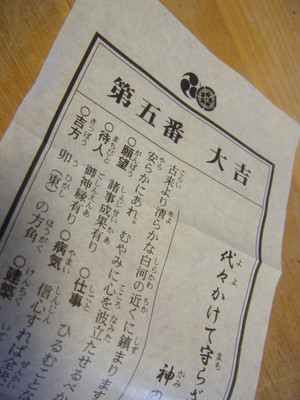 第五番 大吉
代々かけて守らざ
神の
古来より清らかな白河の近くに鎮まります
安らかにあれ。むやみに心を波立たせるべか
○願望 諸事成果有り ○仕事 ひるむことな
○待人 御神縁有り ○病気 信心すれば全
○吉方 卯(東)の方角 ○建築